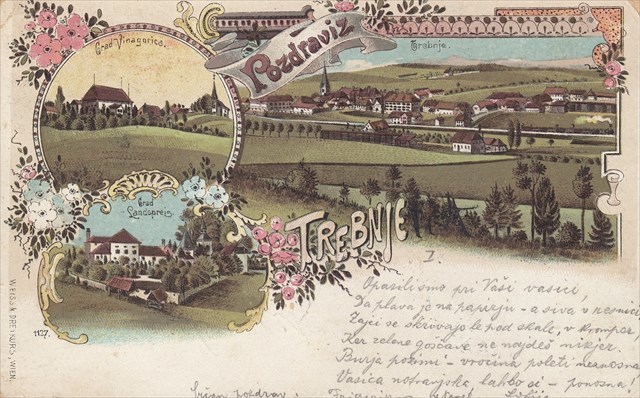 Grad Vinagorica.
Pozdrav iz
Trebnje.
Grad
Landspreis
TREBNJE
I.
Opazili smo pri Vaši vasici,
Da plava je na papirju - a siva v resnici
Zajci se skrivajo le pod skale, v krompir,
Ker zelene goščave ne najdeš nikjer.
Burja pozimi - vročina poleti neznosna
Vasica notranjska, lahko si - ponosna!
pozdrav
1127.
WEISS & DREYKURS, WIEN.